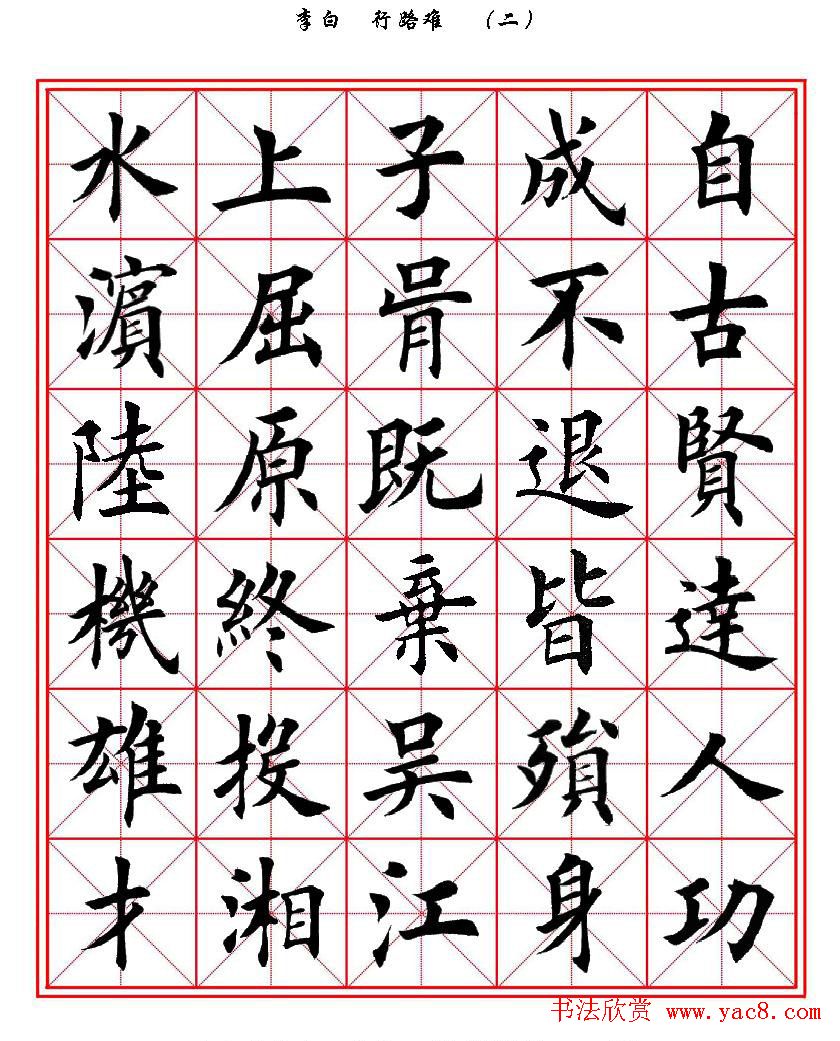 李白 行路难 （二）
自古賢達人功
成不退皆殞身
子胥既棄吴江
上屈原終投湘
水濱陸機雄才
书法欣赏 www.yac8.com